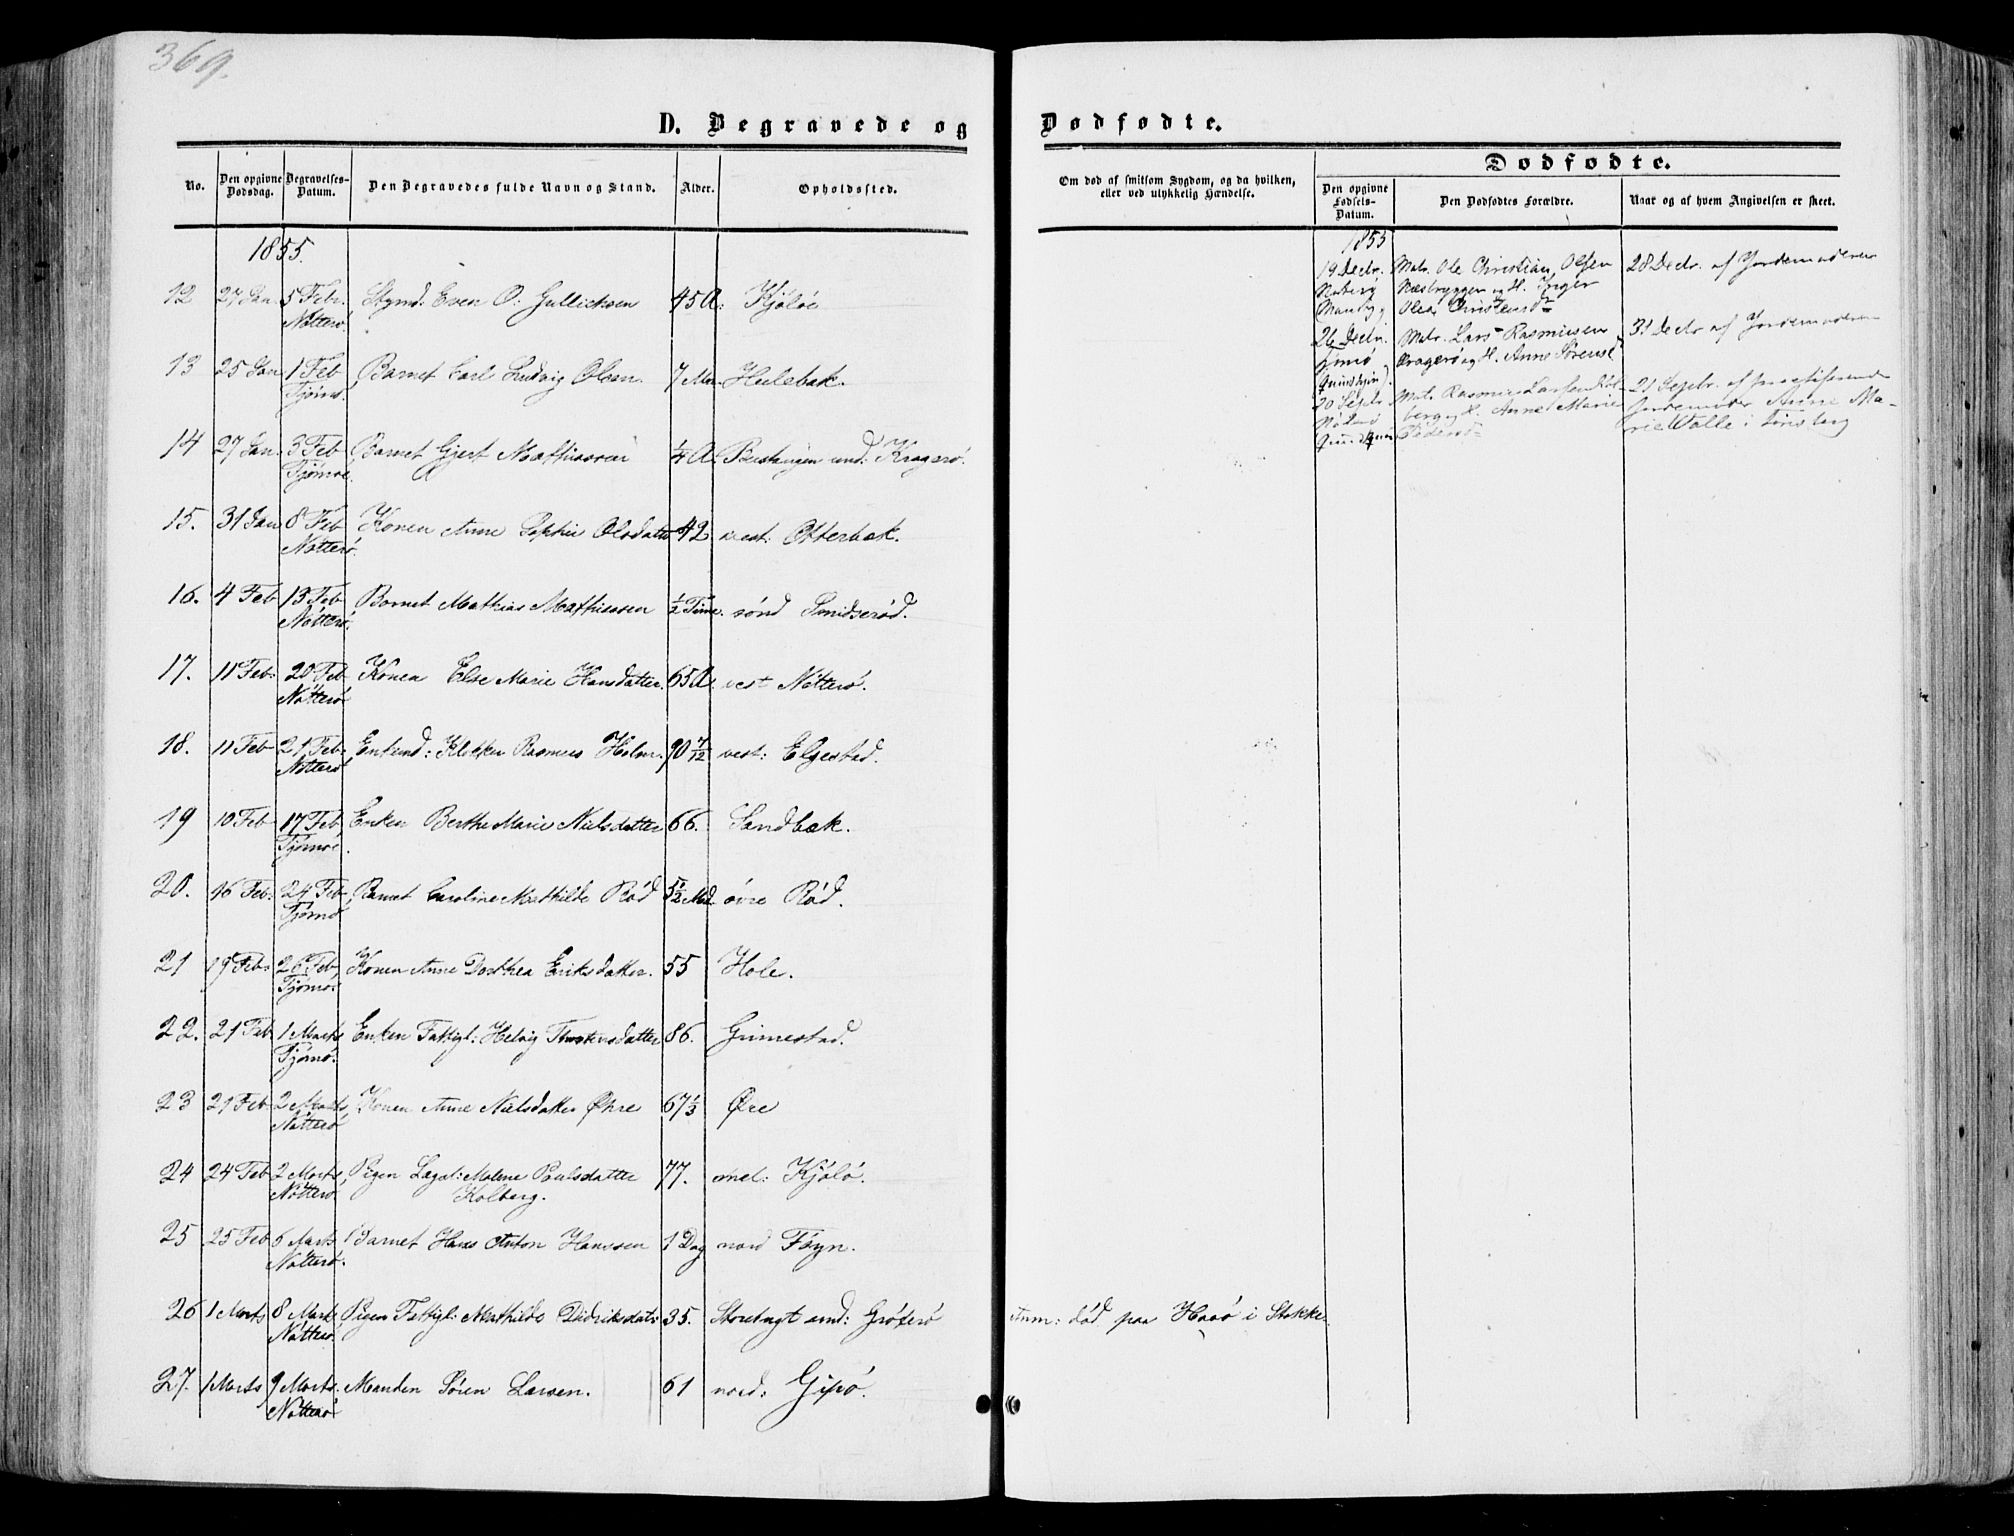 369.
D. Begravede og
Dødfødte.
No.
Den opgivne Dødsdag.
Begravelses-Datum.
Den Begravedes fulde Navn og Stand.
Alder.
Opholdssted.
Om død af smitsom Sygdom, og da hvilken,
eller ved ulykkelig Hændelse.
Dødfødte.
Den opgivne Fødsels-Datum.
Den Dødfødtes Forældre.
Naar og af hvem Angivelsen er skeet.
1855.
12 27 Jan 5 Febr. Even O: Gullichsen 45 A: Kjøløe
Nøtterø
13 25 Jan 1 Feb Barnet Carl Ludvig Olsen. 7 Hulebak.
Tjømø.
14 27 Jan 3 Feb Barnet Gjert Mathiassen 1/4 A. und: Kragerø.
Tjømøe.
15. 31 Jan 8 Feb Konen Anne Sophie Olsdatter 42 vest: Otterbæk.
Nøtterø.
16. 4 Feb 13 Feb Barnet Mathias Mathiassen 1/2 Time. sønd Smidserød.
Nøtterø.
17. 11 Feb: 20 Feb Konen Else Marie Hansdatter. 65 A. vest Nøtterø.
Nøtterø
18. 11 Feb 21 Feb: Rasmus Holm. 90 7/12 vest: Elgestad.
Nøtterø
19 10 Feb 17 Feb Enken Berthe Marie Nielsdatter 66. Sandbæk.
Tjømøe.
20. 16 Feb: 24 Feb Barnet Caroline Mathilde Rød 5 1/2 Md. øvre Rød.
Tjømø
21 19 Feb: 26 Feb. Konen Anne Dorthea Eriksdatter. 55 Hole.
Tjømø.
22. 21 Feb. 1 Marts Enken Fattigl: Helvig Thorstensdatter 86. Grimestad.
Tjømø.
23 21 Feb 2 Marts Konen Anne Nielsdatter Øhre 67 1/3 Øre
Nøtterø
24 24 Feb 2 Marts Pigen Lægsl: Malene Poulsdatter 77. mel: Kjølø.
Nøtterø Kolberg.
25 25 Feb 6 Marts Barnet Hans Anton Hanssen 1 Dag nord Føyn.
Nøtterø.
26 1 Marts 8 Marts Pigen Fattigl: Mathilde Didriksdatr 35. und: Grøterø Anm: død paa Haaø i Stokke.
Nøtterø
27. 1 Marts 9 Marts. Manden Søren Larsen. 61 nord: Gipø.
Nøtterø
1855
19 Decbr. Matr. Ole Christian Olsen 28 Decbr. af Jordemoderen
Næsbryggen og H. Inger
Olea Christensd
26 Decbr. Matr. Lars Rasmussen 31 Decbr af Jordemoderen
Kragerø og H. Anne Sørensd
20 Septbr Matr. Rasmus Larsen 21 Septbr. af practiserende
Nøtterø og H. Anne Marie Jordemoder Anne Ma-
Pedersd rie Walle i Tønsberg